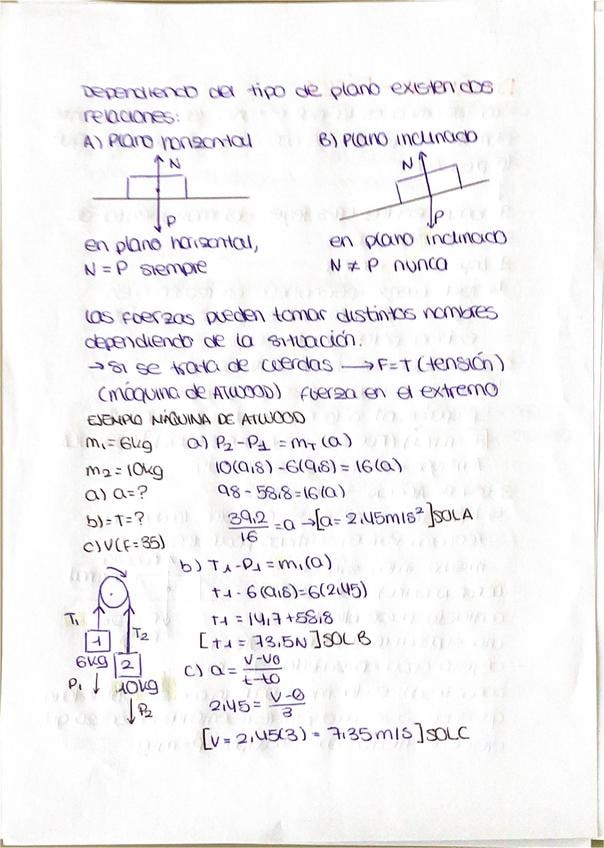 Dependiendo del tipo de plano existen dos
relaciones:
A) Plano horizontal
N
P
en plano horizontal,
N = P siempre
B) Plano inclinado
N
P
en plano inclinado
N ≠ P nunca
Las fuerzas pueden tomar distintos nombres
dependiendo de la situación.
→ Si se trata de cuerdas → F=T (tensión)
(máquina de ATWOOD) fuerza en el extremo
EJEMPLO MÁQUINA DE ATWOOD
m₁=6kg
m₂=10kg
a) a=?
b)=T=?
c) V(F=3s)
T₁
T₂
1
6kg
2
10kg
P₁
P₂
a) P₂-P₁=mT(a)
10(9,8)-6(9,8)=16(a)
98-58,8=16(a)
39,2/16=a→[a=2,45m/s²]SOLA
b) T₁-P₁=m₁(a)
t₁-6(9,8)=6(2,45)
t₁=14,7+58,8
[t₁=73,5N]SOLB
c) a=v-v₀/t-t₀
2,45=v-0/3
[V=2,45(3)=7,35m/s]SOLC